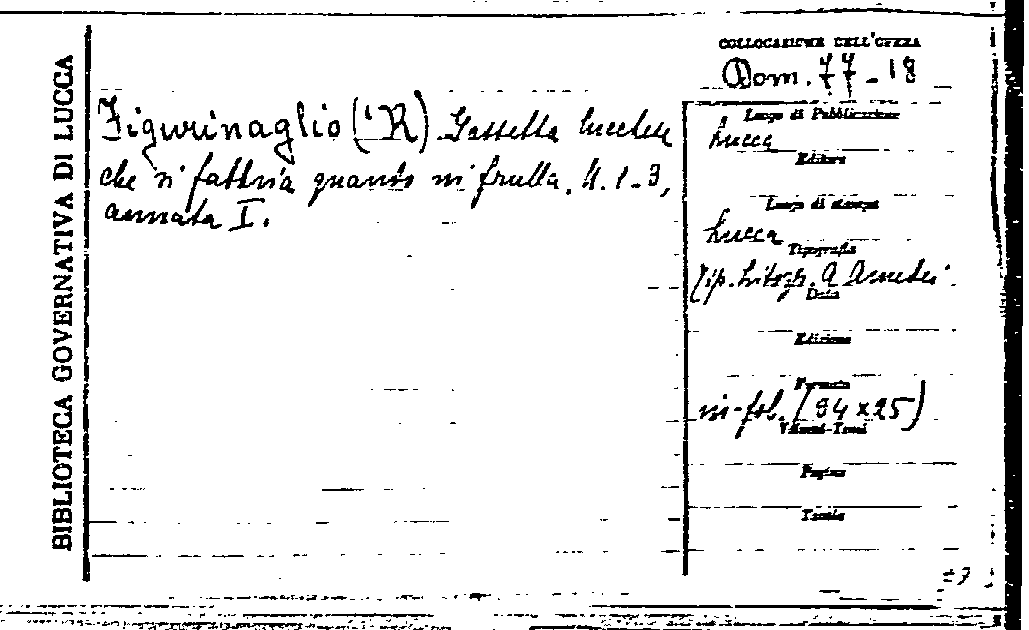 BIBLIOTECA GOVERNATIVA DI LUCCA
COLLOCAZIONE DELL'OPERA
Dom. 77-18
Figurinaglio ('R) Gassetta lucchese
che si fabbria quando ni frulla. N. 1-3,
annata I.
Luogo di Pubblicazione
Lucca
Editore
Luogo di stampa
Lucca
Tipografia
Tip. Litogr. A. Amedei
Data
Edizione
Formato
in-fol. (34x25)
Volumi-Tomi
Pagine
Tavole